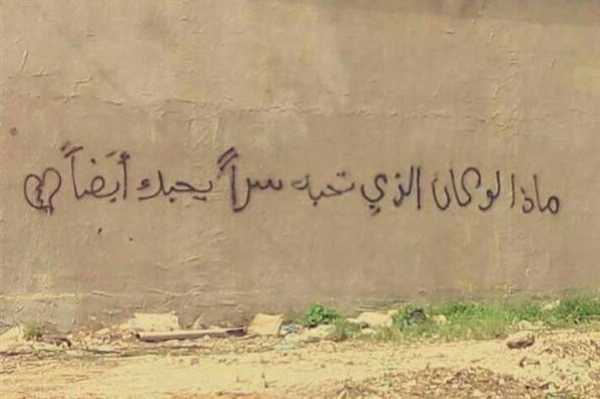 ماذا لو كان الذي تحبه سراً يحبك أيضاً